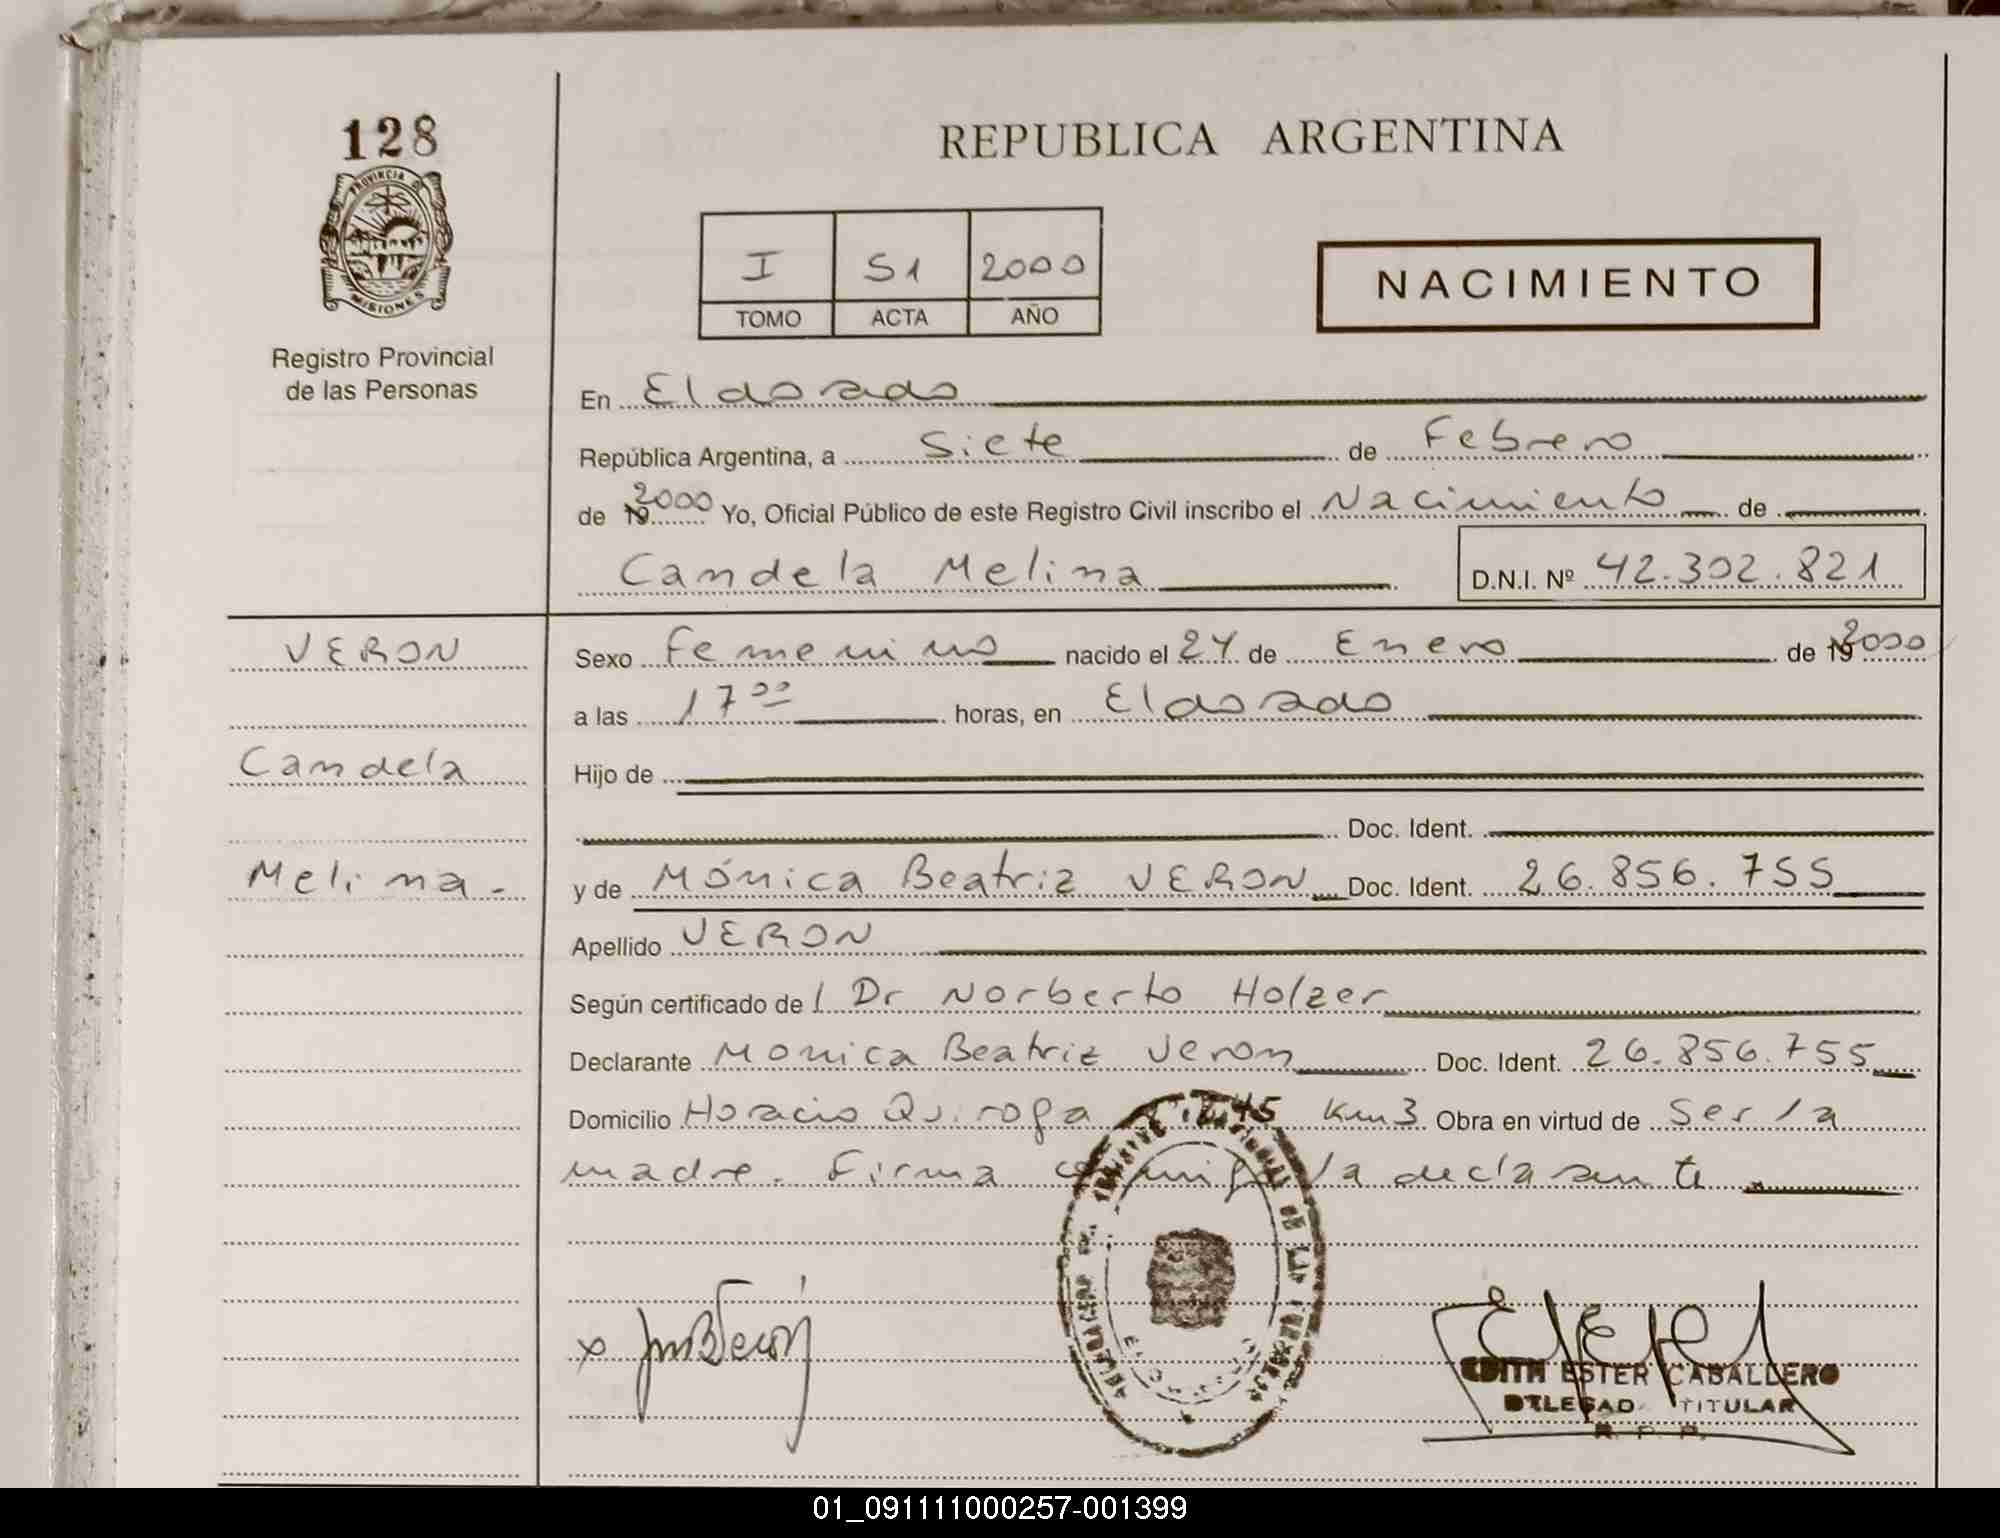 128
PROVINCIA DE
MISIONES
Registro Provincial
de las Personas
REPUBLICA ARGENTINA
I 51 2000
TOMO ACTA AÑO
NACIMIENTO
En Eldorado
República Argentina, a Siete de Febrero
de 19 2000 Yo, Oficial Público de este Registro Civil inscribo el Nacimiento de
Candela Melina D.N.I. Nº 42.302.821
VERON
Sexo Femenino nacido el 24 de Enero de 19 2000
a las 17 00 horas, en Eldorado
Candela
Hijo de
Doc. Ident.
Melina.-
y de Mónica Beatriz VERON Doc. Ident. 26.856.755
Apellido VERON
Según certificado de l Dr Norberto Holzer
Declarante Monica Beatriz Veron Doc. Ident. 26.856.755
Domicilio Horacio Quiroga Km 3 Obra en virtud de Ser la
madre. Firma la declarante
EDITH ESTER CABALLERO
DELEGAD TITULAR
R. P. P.
01_091111000257-001399